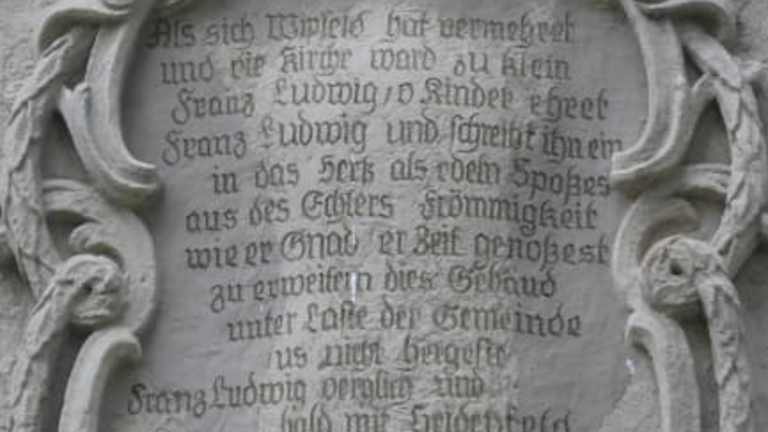 Als sich Wipfeld hat vermehret
und die Kirche ward zu klein
Franz Ludwig, o Kinder ehret
Franz Ludwig und schreibt ihn ein
in das Hertz als edeln Sproßes
aus des Echters Frömmigkeit
wie er Gnad er Zeit genoßest
zu erweitern dies Gebäud
unter Laste der Gemeinde
us nicht hergeste
Franz Ludwig verglich und
bald mit Heidenfeld